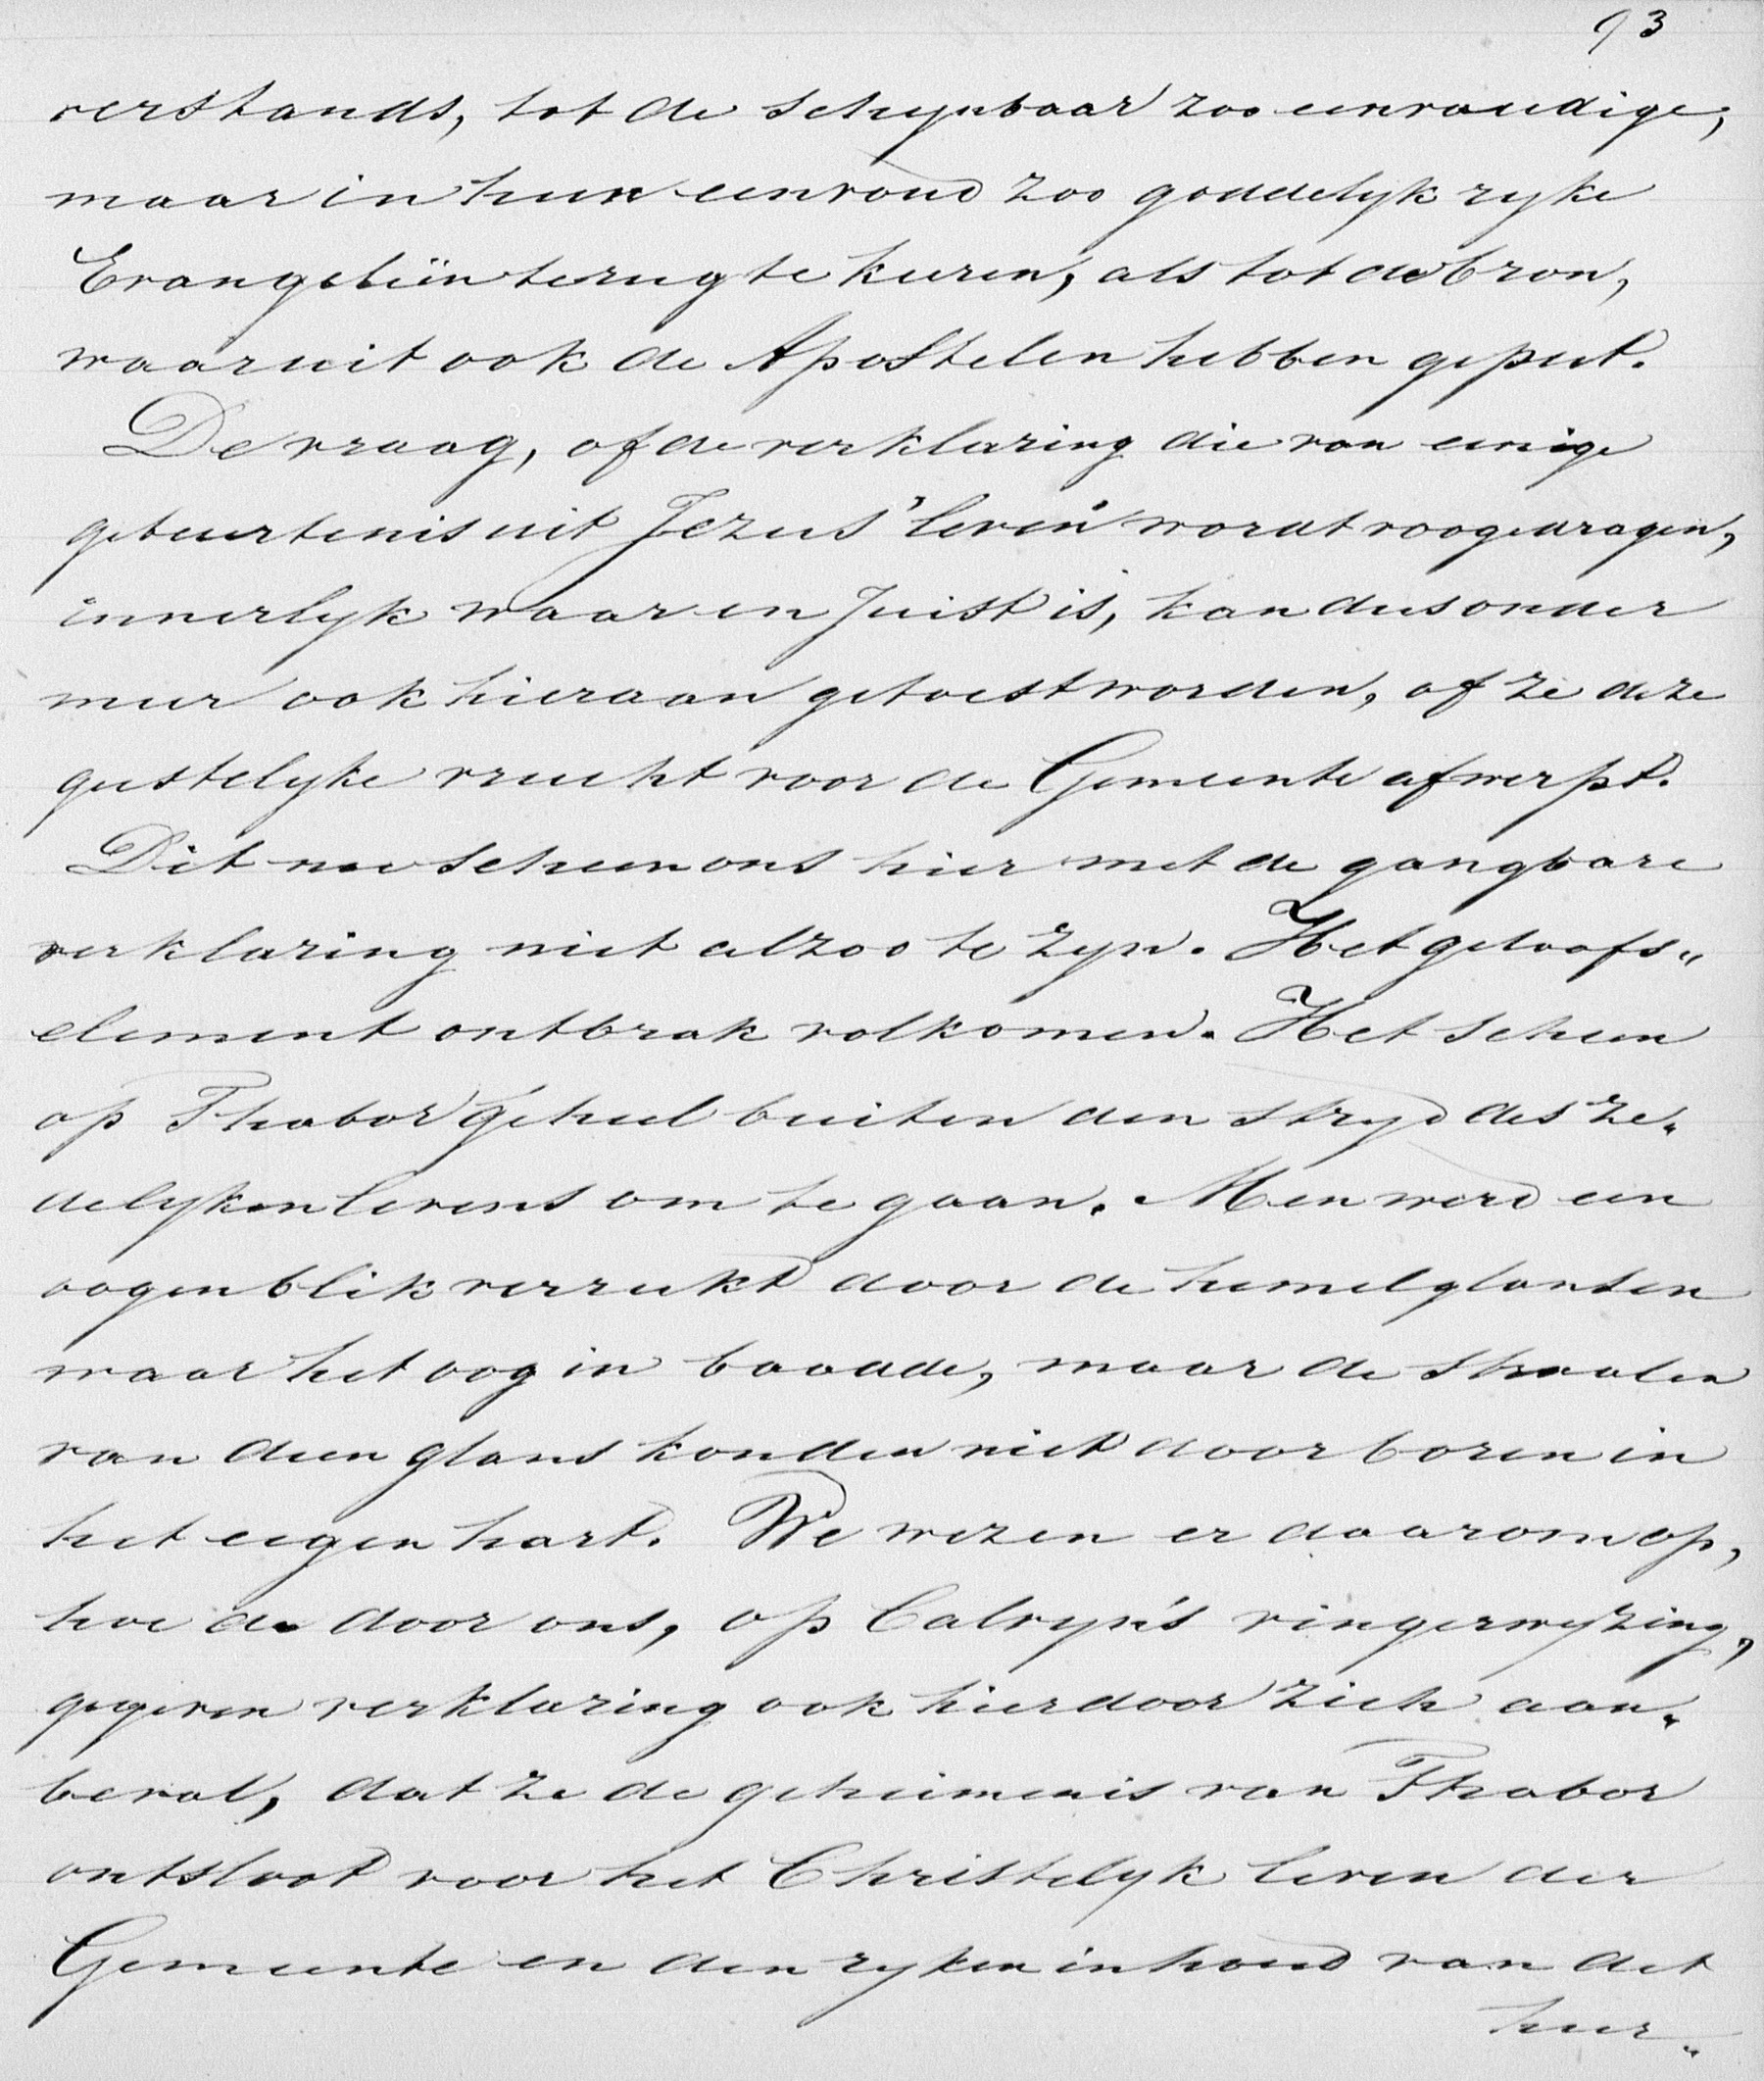 93
verstands, tot de schijnbaar zoo eenvoudige,
maar in hun eenvoud zoo goddelijk rijke
Evangeliën terug te keeren, als tot de bron,
waaruit ook de Apostelen hebben geput.
De vraag, of de verklaring die van eenige
gebeurtenis uit Jezus' leven wordt voogedragen,
innerlijk waar en juist is, kan dus onder
meer ook hieraan getoest worden, of ze deze
geestelijke vrucht voor de Gemeente afwerpt.
Dit nu scheen ons hier met de gangbare
verklaring niet alzoo te zijn. Het geloofs„
element ontbrak volkomen. Het scheen
op Thabor geheel buiten den strijd des ze„
delijken levens om te gaan. Men werd een
oogenblik verrukt door de hemelglansen
waar het oog in baadde, maar de stralen
van deen glans konden niet doorboren in
het eigen hart. We wezen er daarom op,
hoe de door ons, op Calvijn's vingerwijzing,
gegeven verklaring ook hierdoor zich aan„
beval, dat ze de geheimenis van Thabor
ontsloot voor het Christelijk leven der
Gemeente en den rijken inhoud van det
heer„